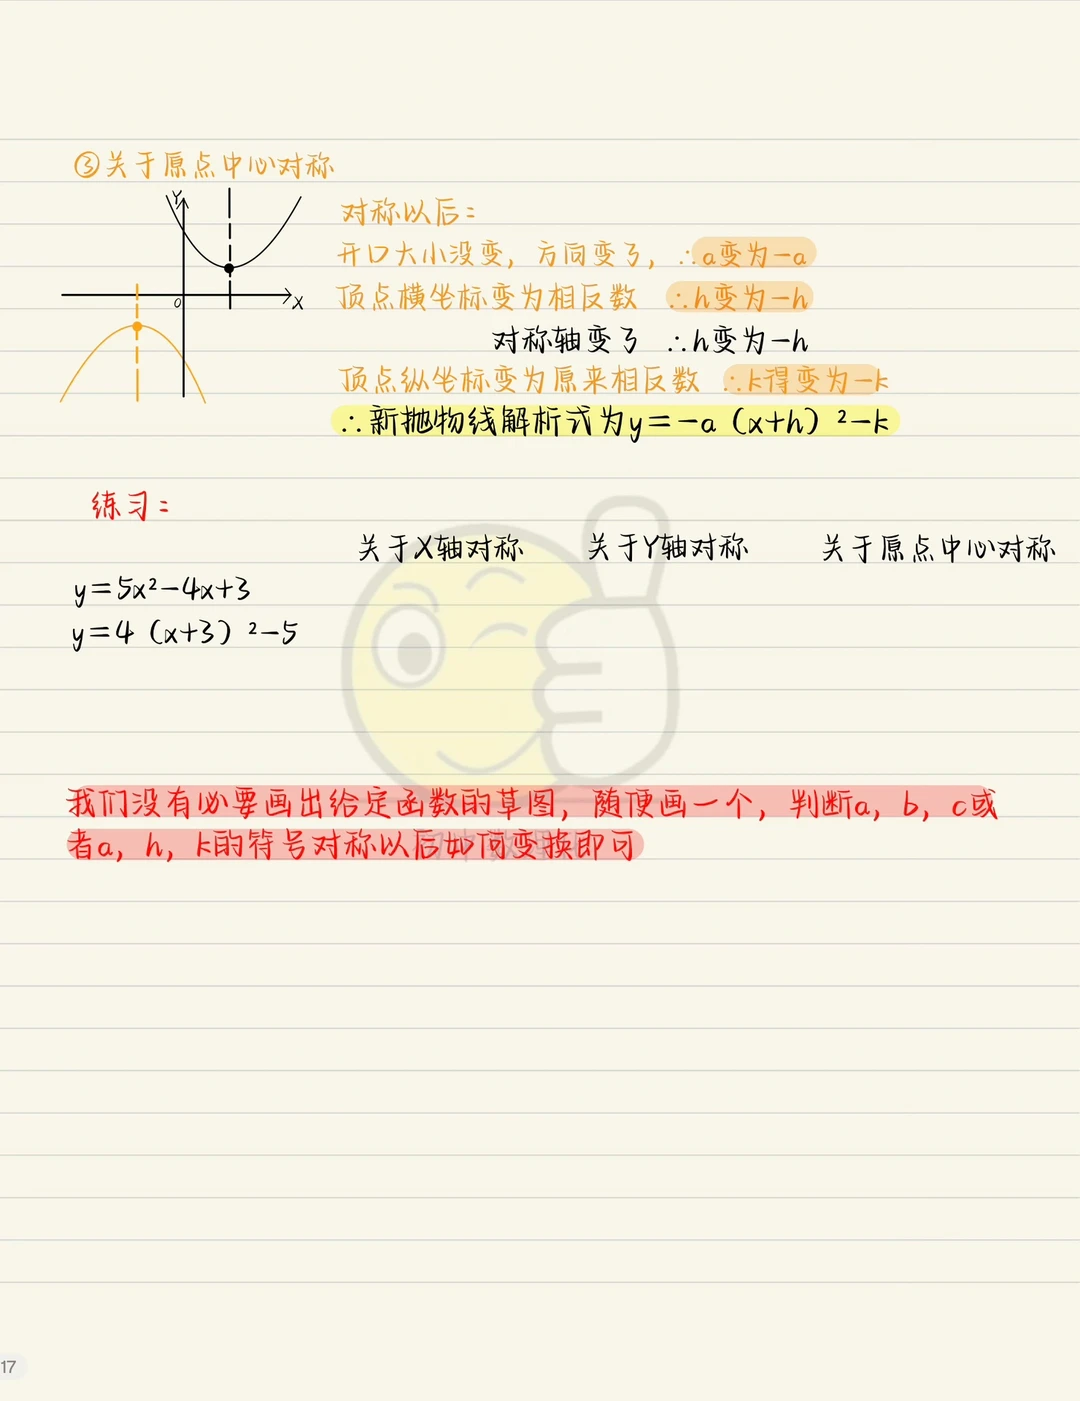 ③关于原点中心对称
Y
对称以后：
开口大小没变，方向变了，∴a变为-a
O
X
顶点横坐标变为相反数 ∴h变为-h
对称轴变了 ∴h变为-h
顶点纵坐标变为原来相反数 ∴k得变为-k
∴新抛物线解析式为y=-a（x+h）²-k
练习：
关于X轴对称 关于Y轴对称 关于原点中心对称
y=5x²-4x+3
y=4（x+3）²-5
我们没有必要画出给定函数的草图，随便画一个，判断a，b，c或
者a，h，k的符号对称以后如何变换即可
17